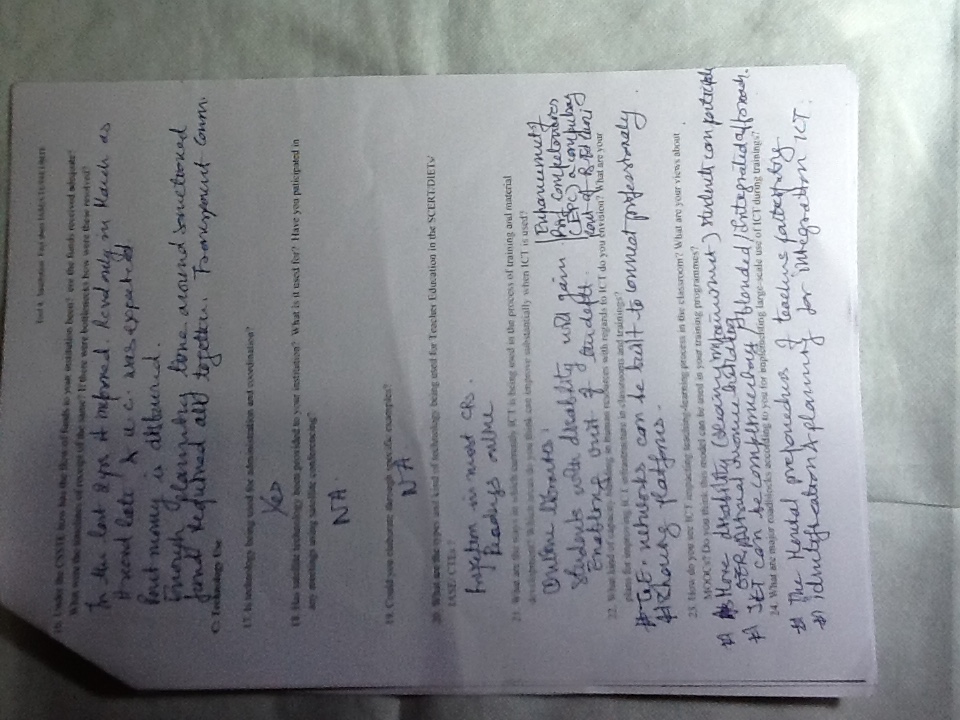 16. Under the CSSTE, how has the flow of funds to your institution been? Are the funds received adequate?
What was the of receipt of the same? If there were bottlenecks how were these resolved?
In the last 2 yrs it improved. Rcvd only in March as
Second late & u.c. was expected
But money is disbursed.
Enough planning done around sanctioned
fund required all together. Transparent Comm.
C. Technology Use
17. Is technology being used for administration and coordination?
Yes
18. Has satellite technology been provided to your institution? What is it used for? Have you participated in
any meetings using satellite conferencing?
NA
19. Could you elaborate through specific examples?
NA
20. What are the types and kind of technology being used for Teacher Education in the SCERT/DIETs/
IASE/ CTEs ?
in most CRs.
Readings online
21. What are the ways in which currently ICT is being used in the process of training and material
development? Which areas do you think can improve substantially when ICT is used?
Online libraries.
Students with disability will gain
Enabling unit of
Enhancement of
Prof Competencies
(EPC) a compulsory
part of B.Ed
22. What kind of capacity building in human resources with regards to ICT do you envision? What are your
plans for improving ICT infrastructure in classrooms and trainings?
T.E. networks can be built to connect professionally
#) Sharing platforms.
23. How do you see ICT impacting teaching-learning process in the classroom? What are your views about
MOOCs? Do you think this model can be used in your training programmes?
#) More disability (hearing impairment) students can participate
OER building
#) ICT can be complimentary, blended/Integrated approach.
24. What are major roadblocks according to you for implementing large-scale use of ICT during trainings?
#) The Mental preparedness of teaching faculty
#) identification & planning for integration ICT.